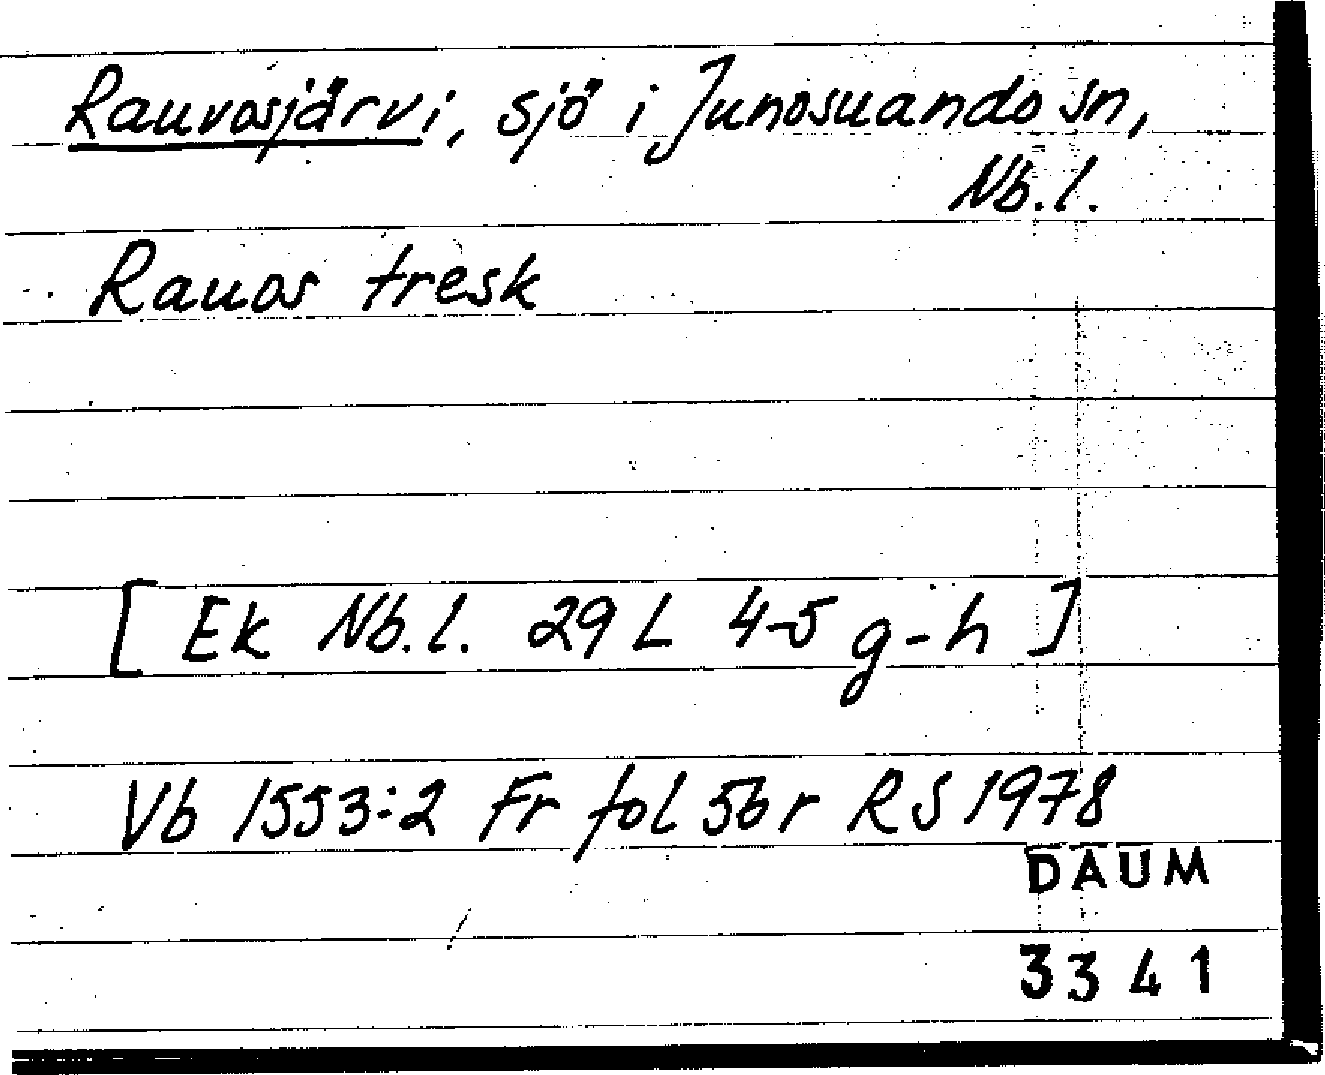 Rauvosjärvi, sjö i Junosuando sn,
Nb.l.
Rauos tresk
[ Ek Nb.l. 29 L 4-5 g-h ]
Vb 1553:2 Fr fol 56r RS 1978
DAUM
3341